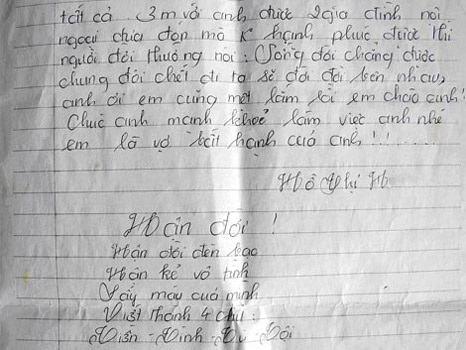 tất cả 3 m với anh được 2 gia đình nội
ngoại đưa đón mà K hạnh phúc được thì
người đời thường nói: Sống đời chẳng được
chung đôi chết đi ta sẽ đời đời bên nhau,
anh ơi em cũng mệt lắm rồi em chào anh!
Chúc anh mạnh khoẻ làm việc anh nhé
em là vợ bất hạnh của anh!!!......
Hồ Thị H
Hận đời!
Hận đời đen bạc
Hận kẻ vô tình
Lấy máu của mình
Viết thành 4 chữ:
Viễn - Vĩnh - Đời